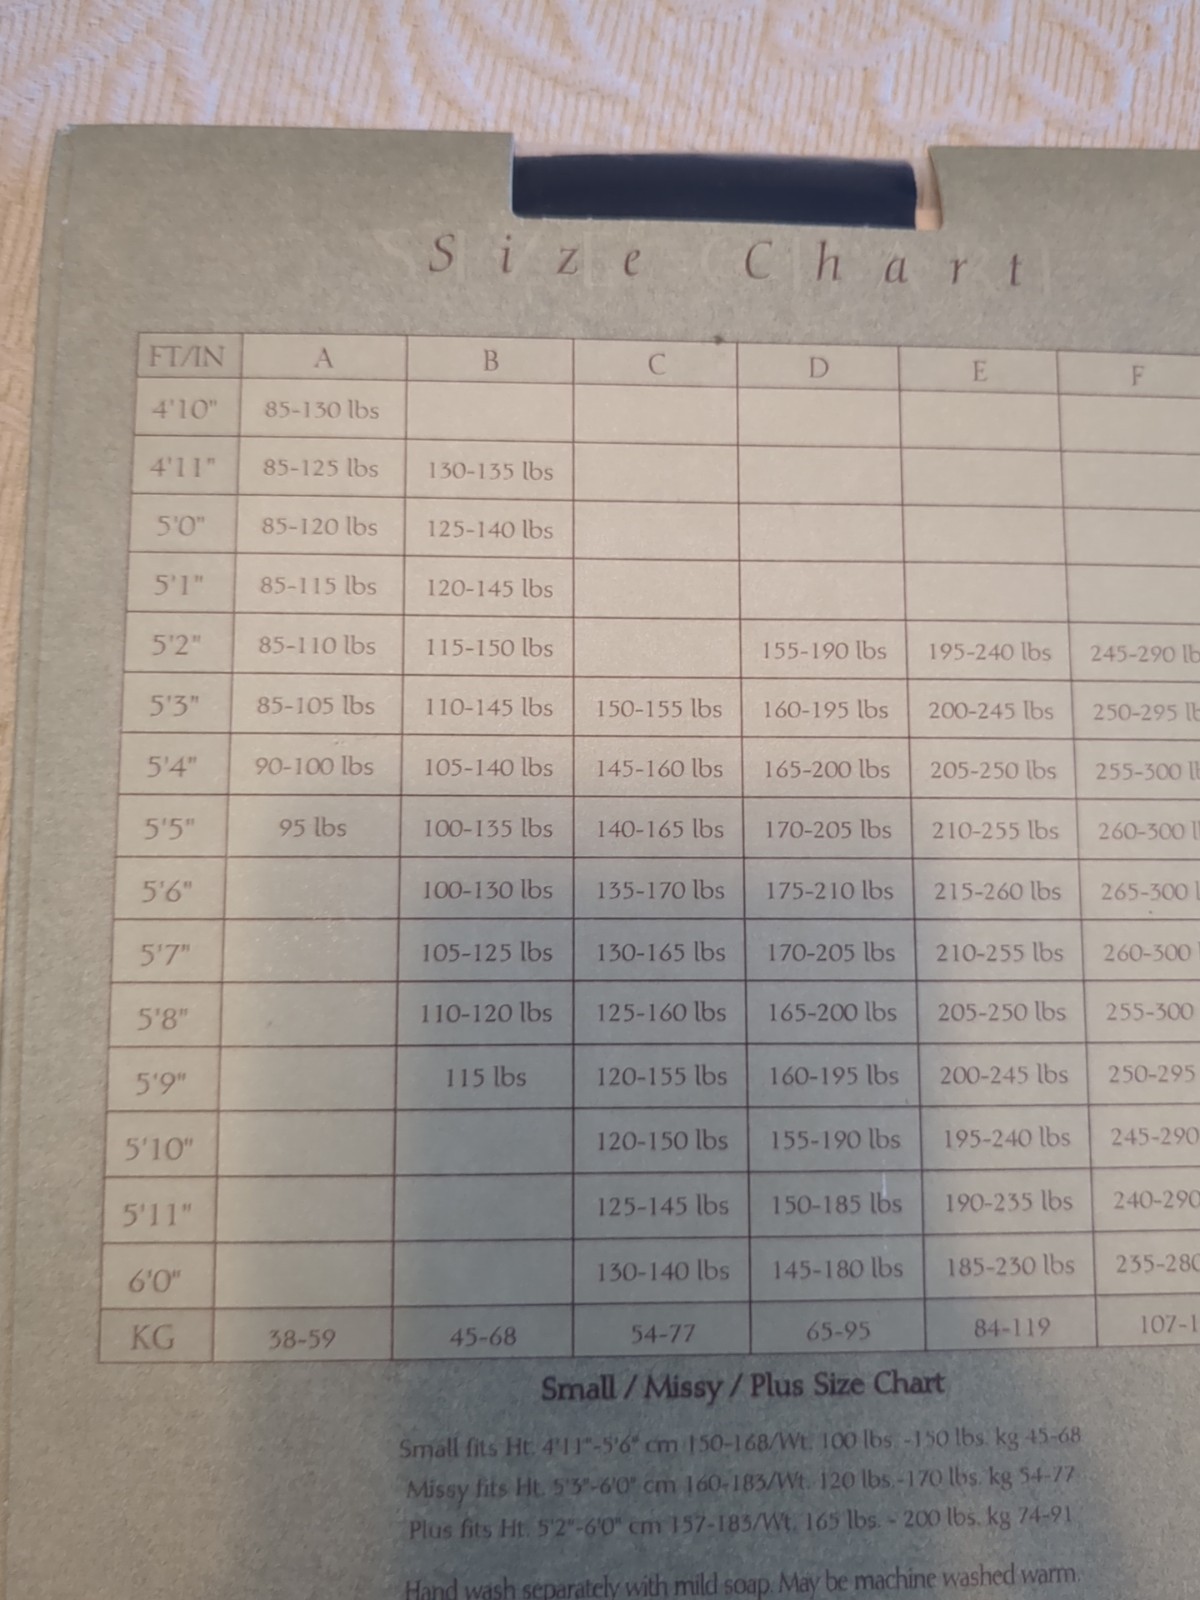 Size Chart
FT/IN A B C D E F
4'10" 85-130 lbs
4'11" 85-125 lbs 130-135 lbs
5'0" 85-120 lbs 125-140 lbs
5'1" 85-115 lbs 120-145 lbs
5'2" 85-110 lbs 115-150 lbs 155-190 lbs 195-240 lbs 245-290 lb
5'3" 85-105 lbs 110-145 lbs 150-155 lbs 160-195 lbs 200-245 lbs 250-295 lb
5'4" 90-100 lbs 105-140 lbs 145-160 lbs 165-200 lbs 205-250 lbs 255-300 lb
5'5" 95 lbs 100-135 lbs 140-165 lbs 170-205 lbs 210-255 lbs 260-300 l
5'6" 100-130 lbs 135-170 lbs 175-210 lbs 215-260 lbs 265-300 l
5'7" 105-125 lbs 130-165 lbs 170-205 lbs 210-255 lbs 260-300
5'8" 110-120 lbs 125-160 lbs 165-200 lbs 205-250 lbs 255-300
5'9" 115 lbs 120-155 lbs 160-195 lbs 200-245 lbs 250-295
5'10" 120-150 lbs 155-190 lbs 195-240 lbs 245-290
5'11" 125-145 lbs 150-185 lbs 190-235 lbs 240-290
6'0" 130-140 lbs 145-180 lbs 185-230 lbs 235-280
KG 38-59 45-68 54-77 65-95 84-119 107-1
Small / Missy / Plus Size Chart
Small fits Ht. 4'11"-5'6" cm 150-168/Wt. 100 lbs. -150 lbs. kg 45-68
Missy fits Ht. 5'3"-6'0" cm 160-183/Wt. 120 lbs.-170 lbs. kg 54-77
Plus fits Ht. 5'2"-6'0" cm 157-183/Wt. 165 lbs. - 200 lbs. kg 74-91
Hand wash separately with mild soap. May be machine washed warm.